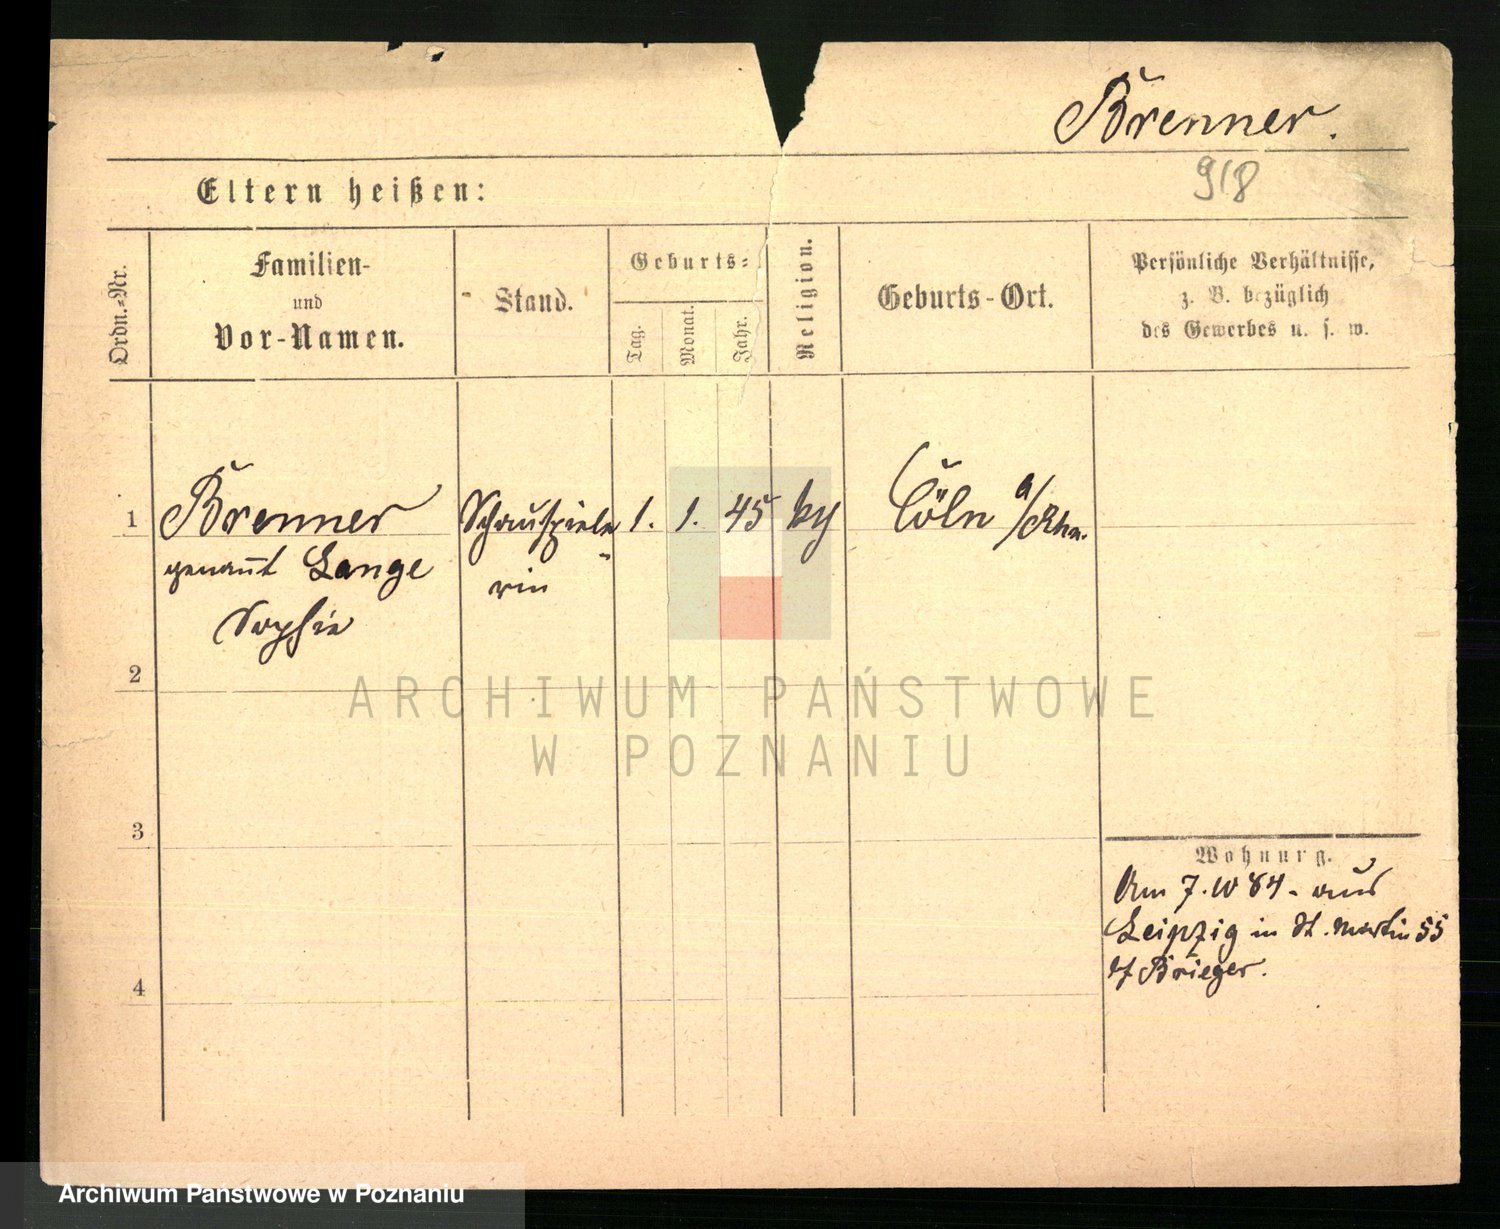 Brenner.
918
Eltern heißen:
Ordn.-Nr.
Familien-
und
Vor-Namen.
Stand.
Geburts-
Tag.
Monat.
Jahr.
Religion.
Geburts-Ort.
Persönliche Verhältnisse,
z. B. bezüglich
des Gewerbes u. s. w.
1 Brenner Schauspiele 1. 1. 45 Cöln a/Rhn.
genannt Lange rin
Sophie
2
ARCHIWUM PAŃSTWOWE
W POZNANIU
3
Wohnung.
Am 7. 84. aus
Leipzig in St. Martin 55
Brieger.
4
Archiwum Państwowe w Poznaniu